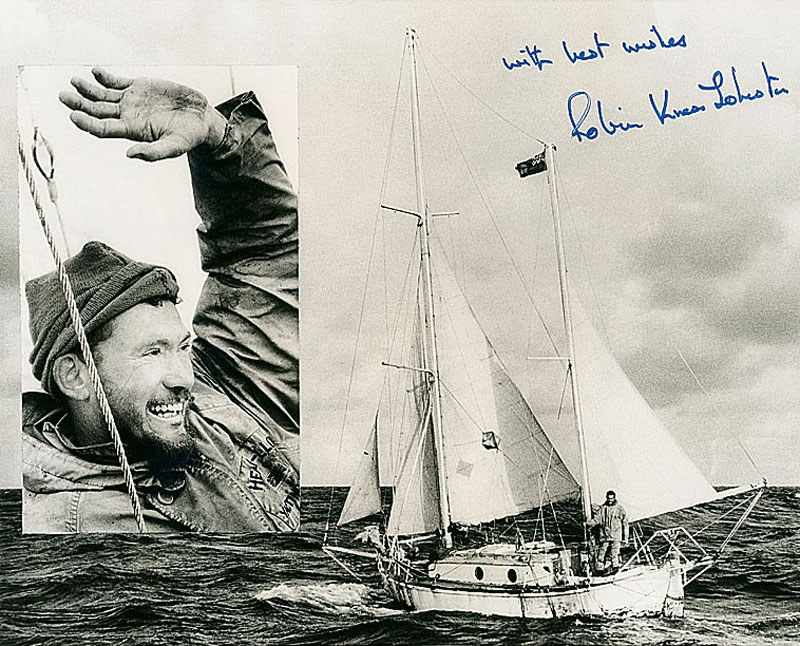 with best wishes
Robin Knox Johnston